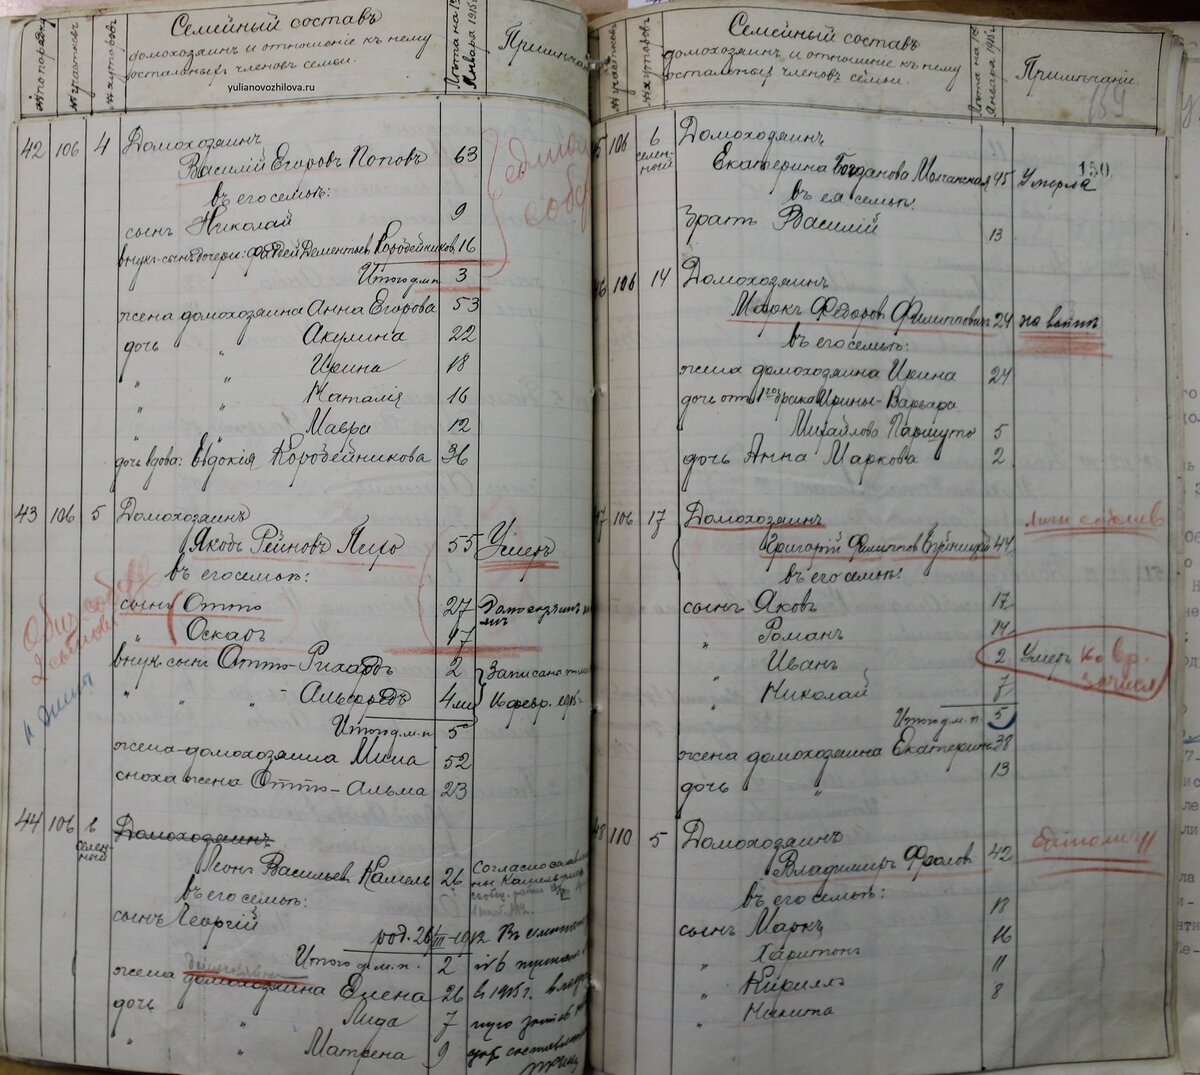 № по порядку
№ участковъ
№ хуторовъ
Семейный составъ
домохозяинъ и отношеніе къ нему
остальныхъ членовъ семьи.
Лѣта на 1е
Января 1915 г.
Примѣчан
yulianovozhilova.ru
42 106 4 Домохозяинъ
Василій Егоровъ Поповъ 63
въ его семьѣ:
сынъ Николай 9
внукъ-сынъ дочери: Фаддей Дементьевъ Коробейниковъ 16
Итого д.м.п. 3
жена домохозяина Анна Егорова 53
дочь " Акулина 22
" " Ирина 18
" " Наталія 16
" " Мавра 12
дочь вдова: Евдокія Коробейникова 36
43 106 5 Домохозяинъ
Якобъ Рейновъ 55 Умеръ
въ его семьѣ:
сынъ Отто 27
" Оскаръ 17
внукъ сынъ Отто-Рихардъ 2 Записано
" " - Альфредъ 4 м. 16 февр. 1915 г.
Итого д.м.п. 5
жена-домохозяина Мина 52
сноха жена Отто-Альма 23
44 106 6 Домохозяинъ
селен-
ный
Леонъ Васильевъ Камель 26 Согласно
въ его семьѣ:
сынъ Георгій
род. 26/III-1912
Итого д.м.п. 2
жена домохозяина Елена 26 1915 г.
дочь " Лида 7
" " Матрена 9
№ участковъ
№ хуторовъ
Семейный составъ
домохозяинъ и отношеніе къ нему
остальныхъ членовъ семьи.
Лѣта на 1е
Января 1915 г.
Примѣчаніе.
159
150
45 106 6 Домохозяинъ
селен-
ный
Екатерина Богданова Молчанская 45 Умерла
въ ея семьѣ:
братъ Василій 13
46 106 14 Домохозяинъ
Маркъ Федоровъ Филипповичъ 24 на войнѣ
въ его семьѣ:
жена домохозяина Ирина 24
дочь отъ 1го брака Ирины-Варвара
Михайлова Паршуто 5
дочь Анна Маркова 2
47 106 17 Домохозяинъ
Григорій Филипповъ 44
въ его семьѣ:
сынъ Яковъ 17
" Романъ 14
" Иванъ 2 Умеръ
" Николай 7
Итого д.м.п. 5
жена домохозяина Екатерина 38
дочь " 13
48 110 5 Домохозяинъ
Владимиръ Фроловъ 42
въ его семьѣ:
сынъ Маркъ 18
" Харитонъ 16
" Кириллъ 11
" Никита 8